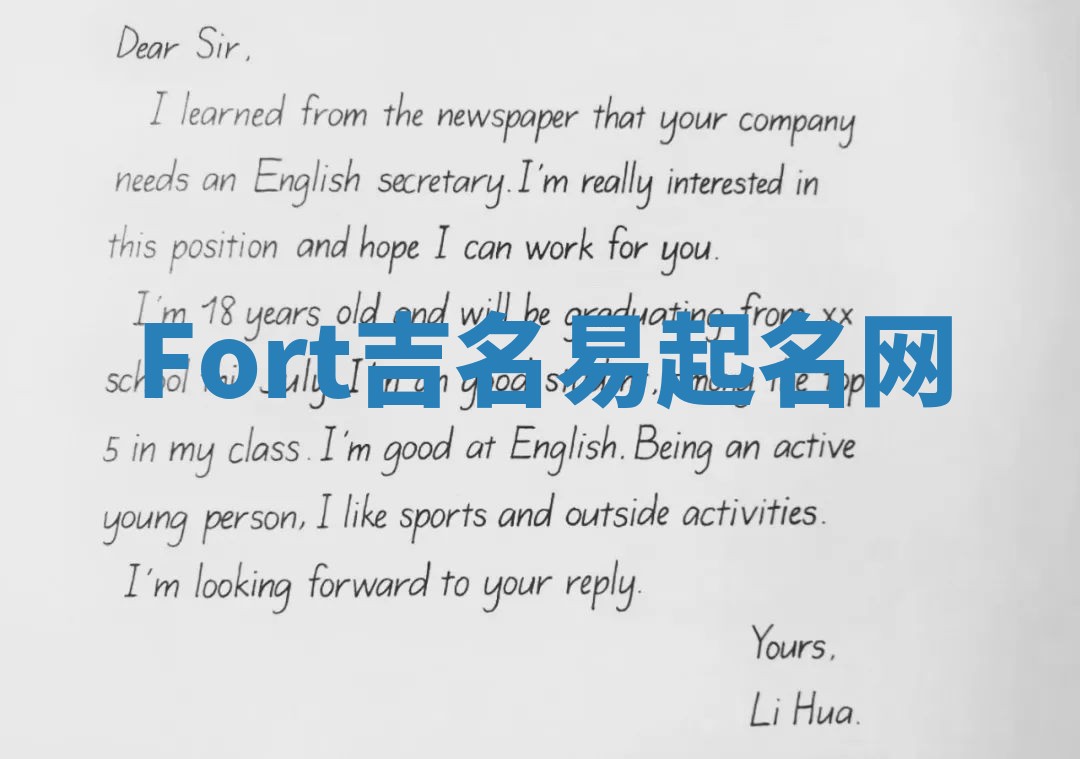 Dear Sir,
I learned from the newspaper that your company
needs an English secretary. I'm really interested in
this position and hope I can work for you.
I'm 18 years old and will be graduating from xx
Fort吉名易起名网
school this July. I'm an good student, among the top
5 in my class. I'm good at English. Being an active
young person, I like sports and outside activities.
I'm looking forward to your reply.
Yours,
Li Hua.